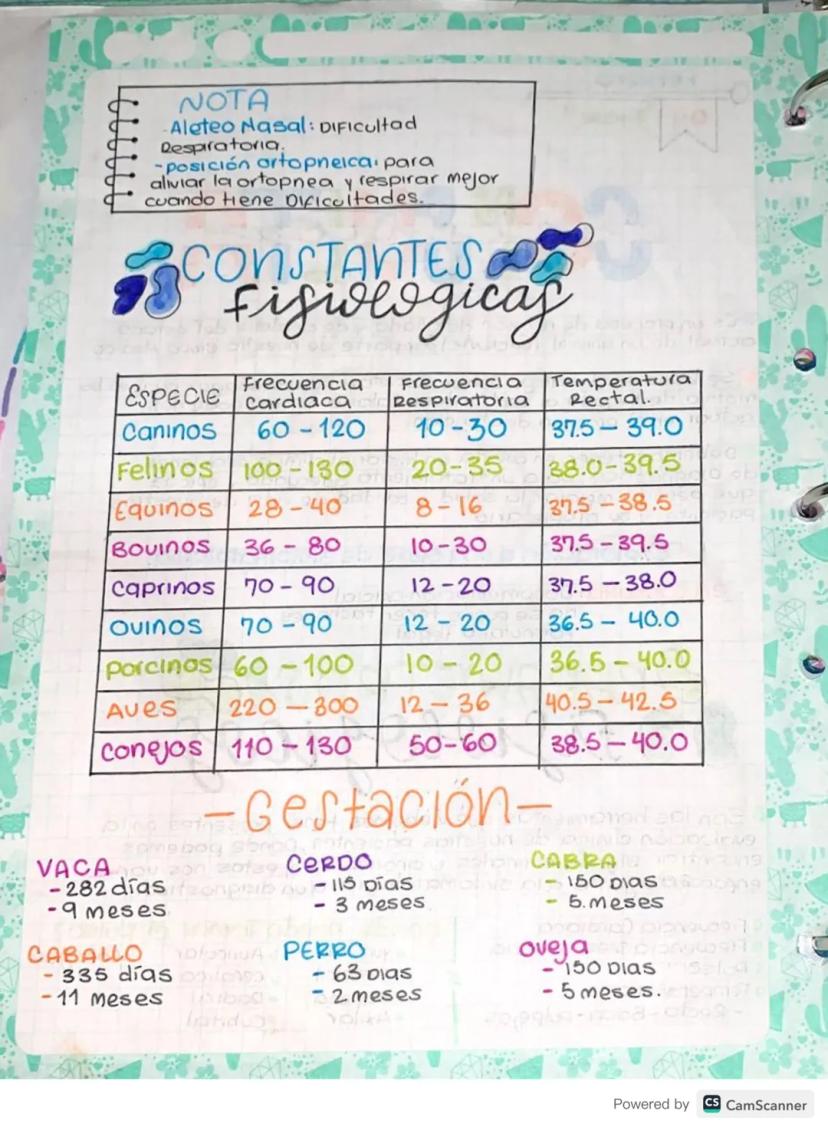 NOTA
-Aleteo Nasal: Dificultad
Respiratoria.
-posición ortopneica: para
aliviar la ortopnea y respirar mejor
cuando tiene Dificultades.
CONSTANTES
fisiologicas
ESPECIE Frecuencia Cardiaca Frecuencia Respiratoria Temperatura Rectal.
Caninos 60 - 120 10 - 30 37.5 - 39.0
Felinos 100 - 180 20 - 35 38.0 - 39.5
Equinos 28 - 40 8 - 16 37.5 - 38.5
Bovinos 36 - 80 10 - 30 37.5 - 39.5
Caprinos 70 - 90 12 - 20 37.5 - 38.0
Ovinos 70 - 90 12 - 20 36.5 - 40.0
Porcinos 60 - 100 10 - 20 36.5 - 40.0
Aves 220 - 300 12 - 36 40.5 - 42.5
Conejos 110 - 130 50-60 38.5 - 40.0
- Gestación -
VACA
- 282 días
- 9 meses
CERDO
- 115 Días
- 3 meses
CABRA
- 150 Dias
- 5.meses
CABALLO
- 335 días
- 11 meses
PERRO
- 63 Dias
- 2 meses
oveja
- 150 Dias
- 5 meses.
Powered by CS CamScanner